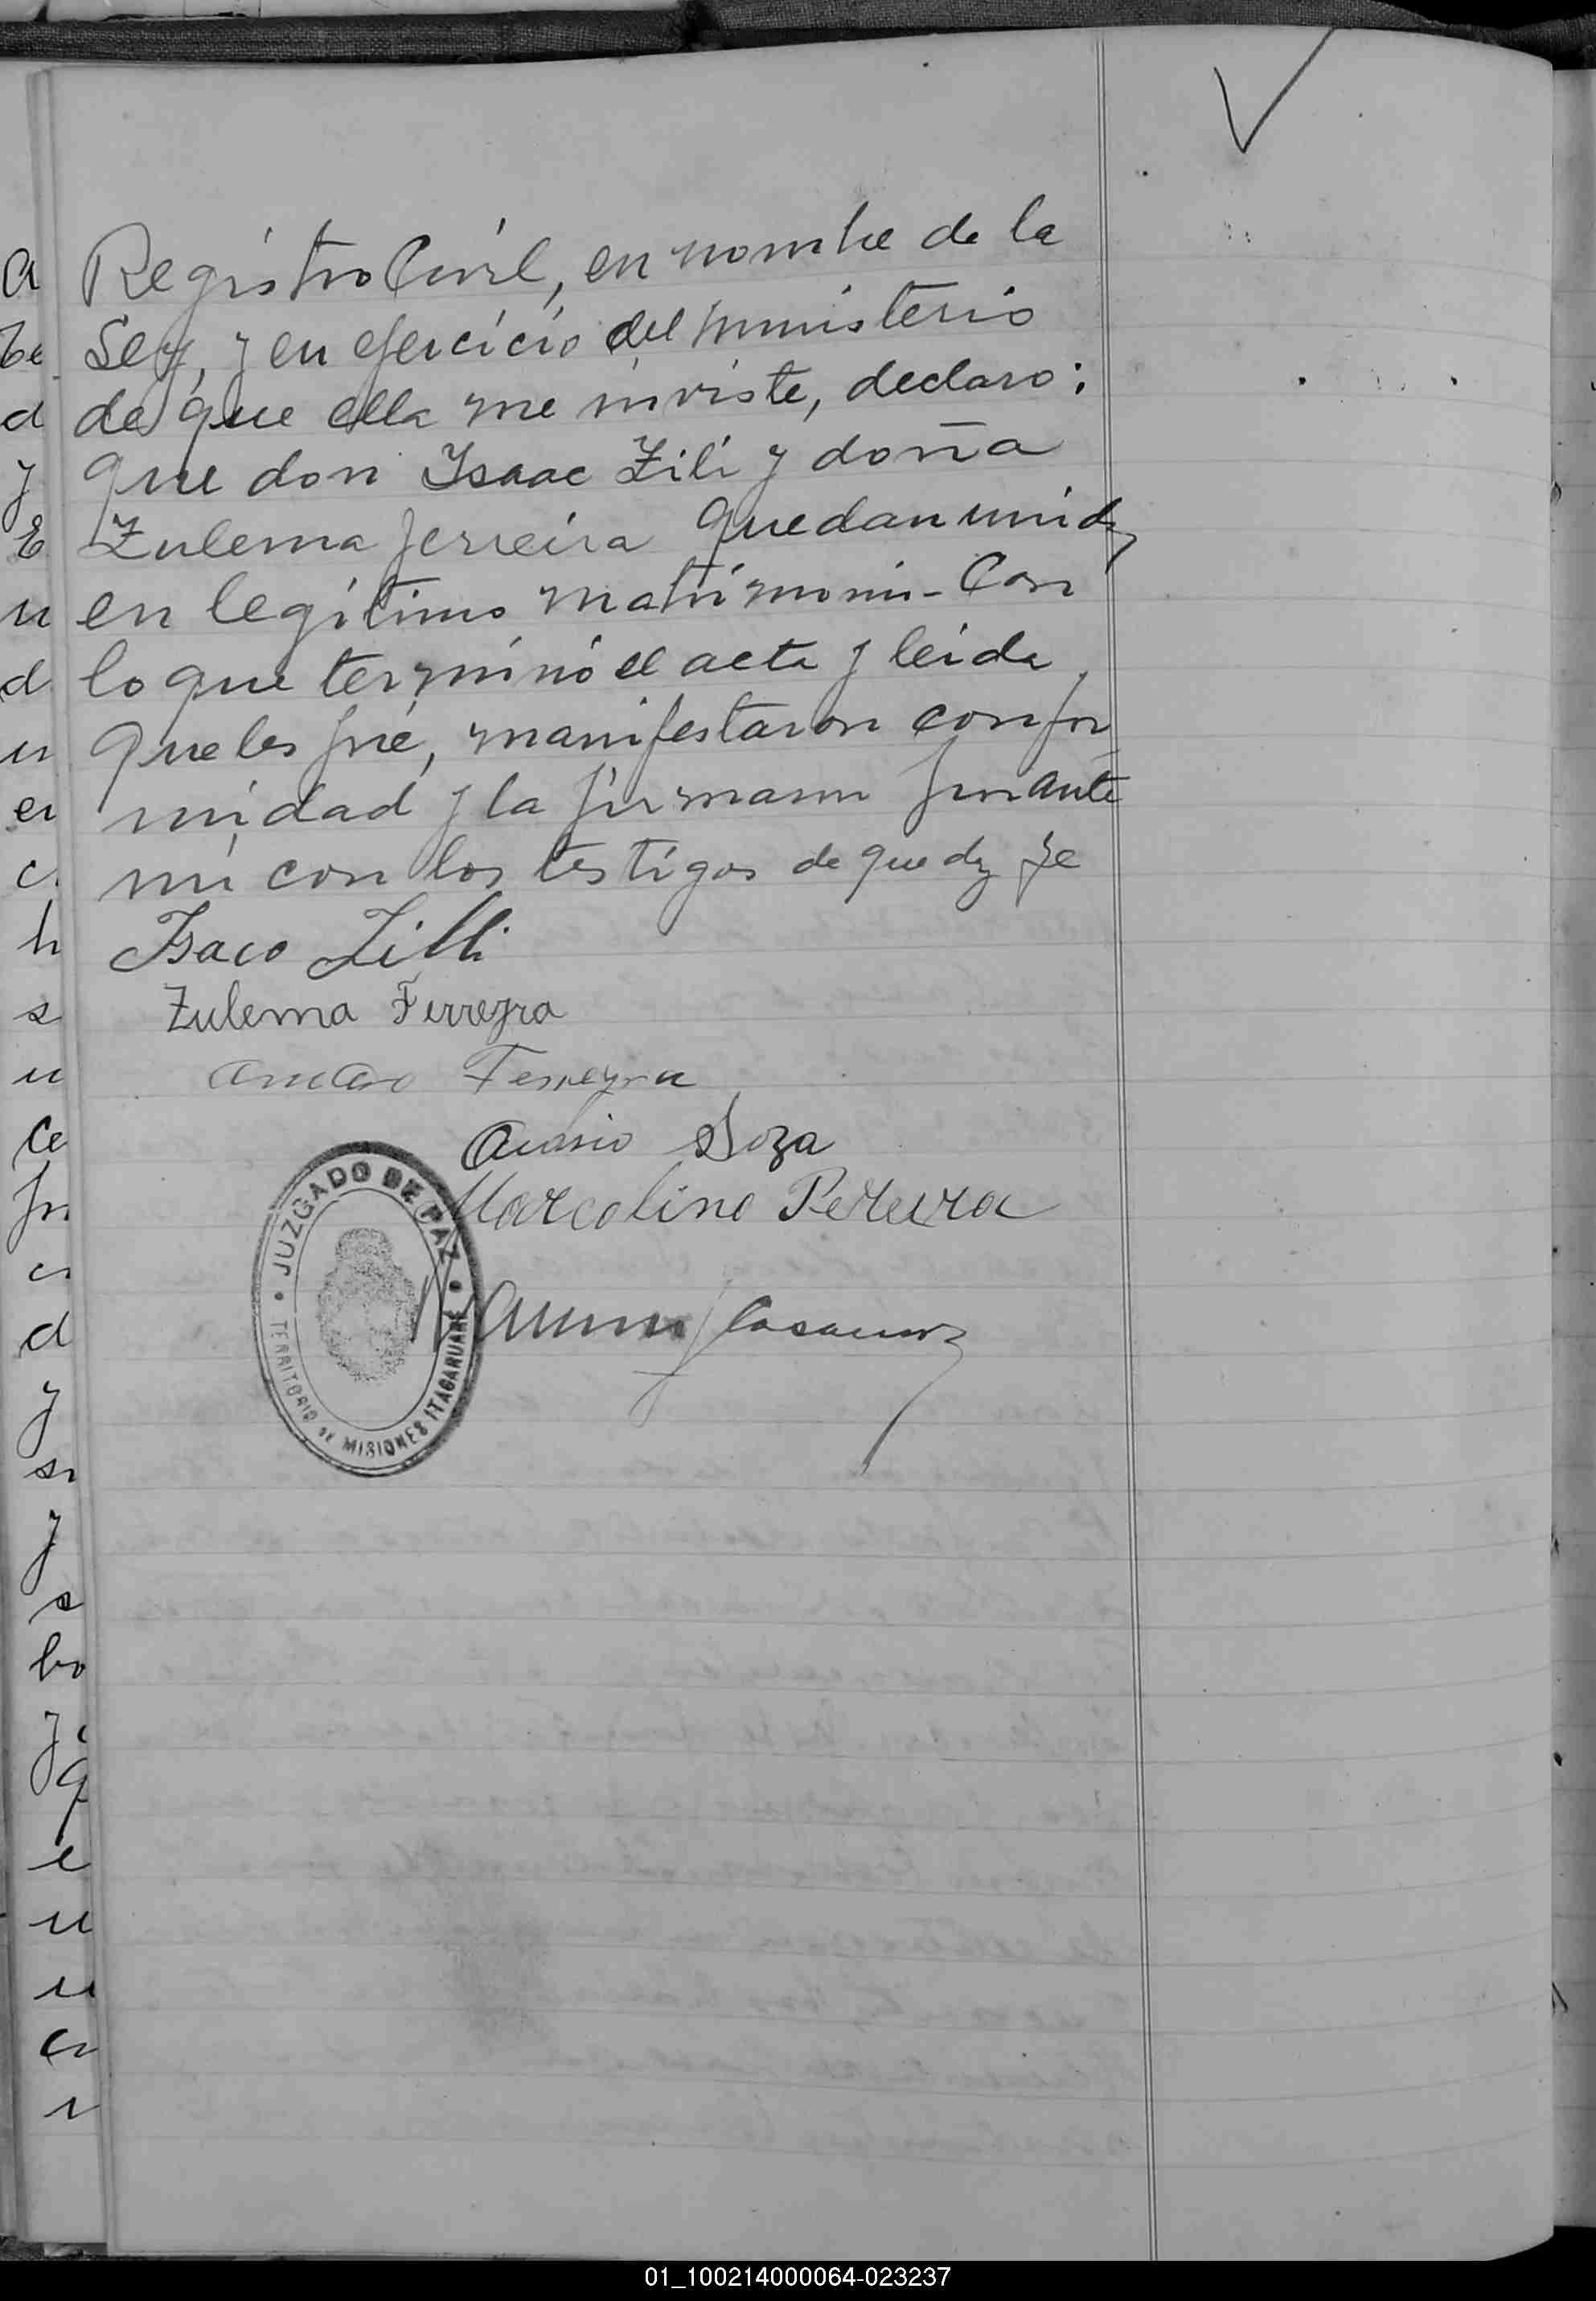 Registro Civil, en nombre de la
Ley, y en ejercicio del ministerio
de que ella me inviste, declaro:
que don Isaac Zili y doña
Zulema Ferreira quedan unidos
en legítimo matrimonio - Con
lo que terminó el acta y leida
que les fué, manifestaron confor
midad y la firmaron por ante
mi con los testigos de que doy fe
Isaco Zilli
Zulema Ferreyra
Amaro Ferreyra
Acasio Soza
Marcolino Pereira
JUZGADO DE PAZ
TERRITORIO DE MISIONES ITACARUARÉ
01_100214000064-023237